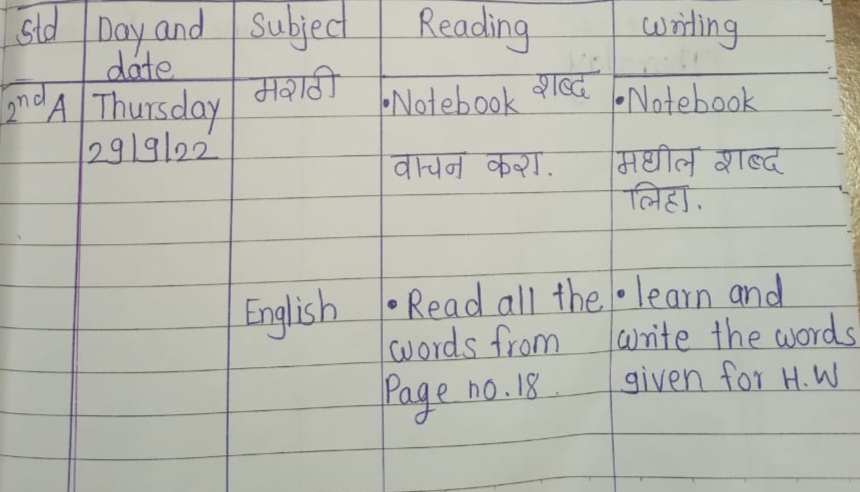 Std Day and date Subject Reading writing
2nd A Thursday 29/9/22
मराठी
•Notebook शब्द
वाचन करा.
•Notebook
मधील शब्द
लिहा.
English
• Read all the
words from
Page no.18.
• learn and
write the words
given for H.W